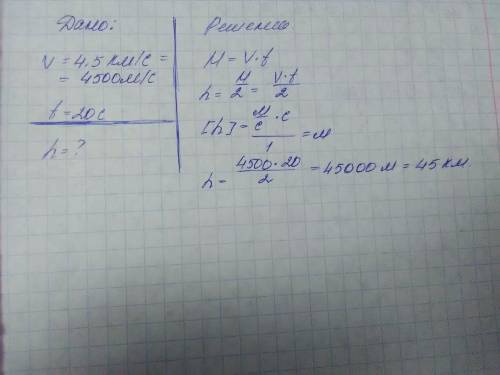 Дано:
v = 4,5 км/с =
= 4500м/с
t = 20с
h = ?
Решение
H = v·t
h = H/2 = v·t/2
[h] = м/с·с/1 = м
h = 4500·20/2 = 45000 м = 45 км.